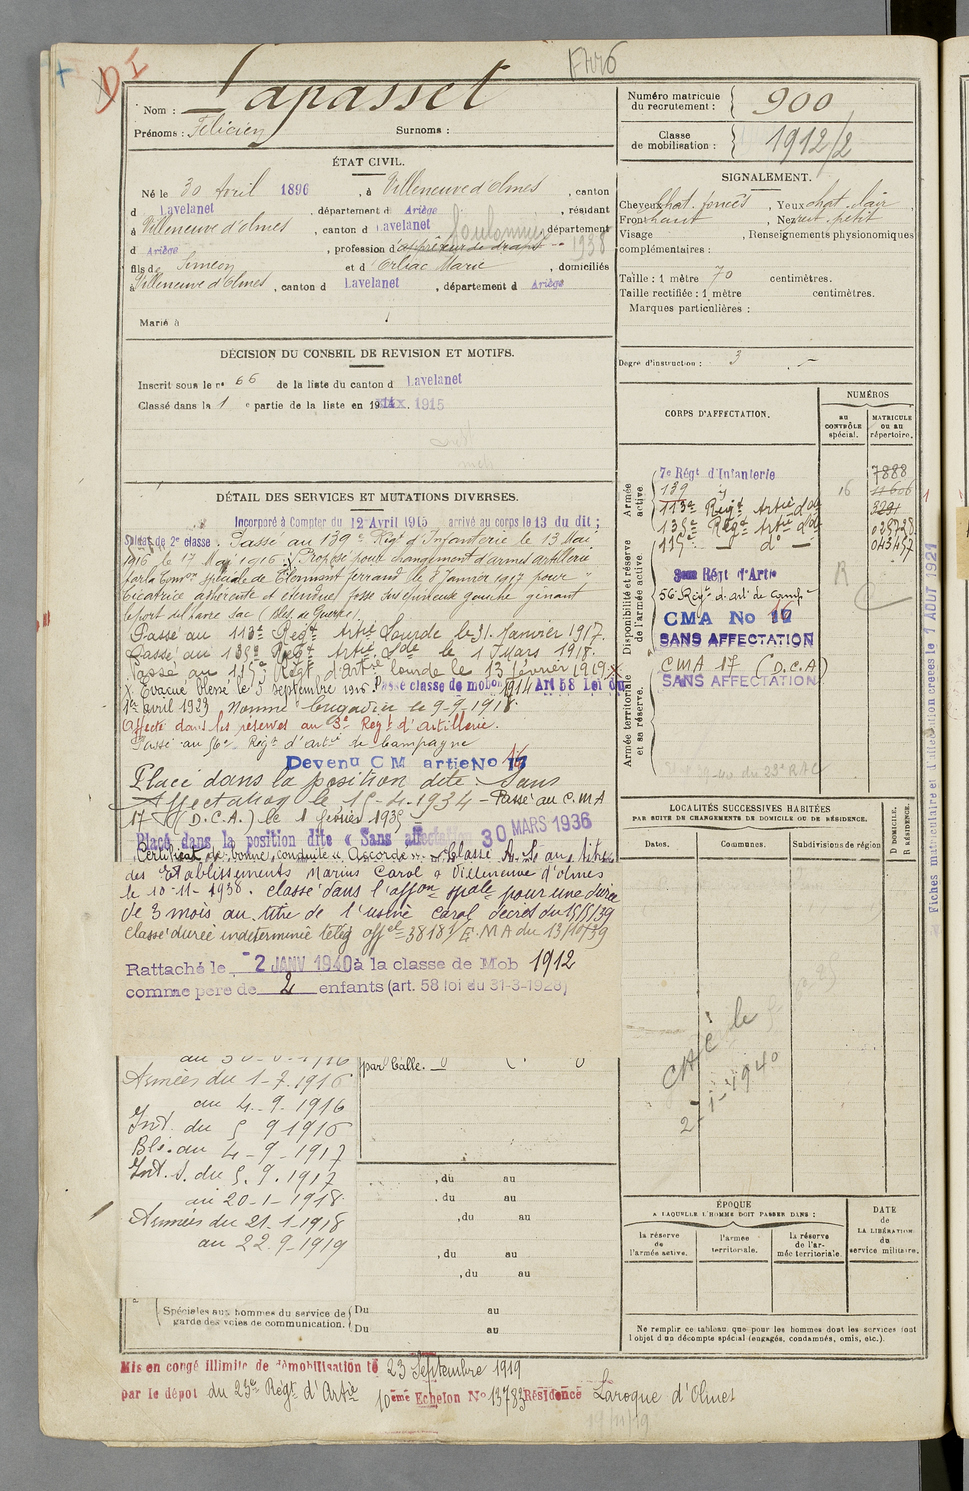 D I
Nom : Lapasset
Prénoms : Félicien Surnoms :
Numéro matricule
du recrutement : 900
Classe
de mobilisation : 1912/2
ÉTAT CIVIL.
Né le 30 Avril 1896, à Villeneuve d'olmes, canton
d Lavelanet, département d Ariège, résidant
à Villeneuve d'olmes, canton d Lavelanet, département
d Ariège, profession d'apprêteur de draps 1938
fils de Siméon et d' Orliac Marie, domiciliés
à Villeneuve d'Olmes, canton d Lavelanet, département d Ariège
Marié à
SIGNALEMENT.
Cheveux chat. foncés, Yeux chat. clair,
Front haut, Nez rect. petit
Visage , Renseignements physionomiques
complémentaires :
Taille : 1 mètre 70 centimètres.
Taille rectifiée : 1 mètre centimètres.
Marques particulières :
Degré d'instruction : 3
DÉCISION DU CONSEIL DE REVISION ET MOTIFS.
Inscrit sous le n° 66 de la liste du canton d Lavelanet
Classé dans la 1 e partie de la liste en 19 1915
DÉTAIL DES SERVICES ET MUTATIONS DIVERSES.
Incorporé à Compter du 12 Avril 1915 arrivé au corps le 13 du dit ;
Soldat de 2e classe. Passé au 139e Régt d'Infanterie le 13 Mai
1916 le 17 Mai 1916. Proposé pour changement d'armes artillerie
par la Comon spéciale de Clermont ferrand le 8 Janvier 1917 pour
Cicatrice adhérente et étendue fosse sus épineuse gauche gênant
le port du havre sac (Bles. de Guerre)
Passé au 113e Régt Artie Lourde le 31 Janvier 1917.
Passé au 135e Régt Artie Lde le 1 Mars 1918.
Passé au 115e Régt d'artie lourde le 13 février 1919.
X Evacué blessé le 5 septembre 1916. Passé classe de mobon 1914 Art 58 Loi du
1er avril 1923 Nommé brigadier le 9-9-1918.
Affecté dans les réserves au 3e Régt d'artillerie.
Passé au 56e Régt d'artie de Campagne
Devenu C M artie No 17
Placé dans la position dite Sans
Affectation le 15-4-1934 - Passé au C.M.A
17 (D.C.A.) le 1 février 1935
Placé dans la position dite « Sans affectation 30 MARS 1936
Certificat de bonne conduite "Accordé". Classé A. S. au titre
des Etablissements Marius Carol à Villeneuve d'olmes
le 10-11-1938. classé dans l'affon spale pour une durée
de 3 mois au titre de l'usine Carol décret du 15/5/39
classé durée indéterminée télég offel 38183/E.M.A du 13/10/39
Rattaché le 2 JANV 1940 à la classe de Mob 1912
comme père de 2 enfants (art. 58 loi du 31-3-1928)
Armées du 1-7-1916
au 4-9-1916
Int. du 5 9 1916
Blé. au 4-9-1917
Int. S. du 5.9.1917
au 20-1-1918
Armées du 21-1-1918
au 22.9-1919
par balle.
, du au
, du au
, du au
, du au
, du au
Spéciales aux hommes du service de
garde des voies de communication.
Du au
Du au
CORPS D'AFFECTATION.
NUMÉROS
AU
CONTRÔLE
spécial.
MATRICULE
OU AU
répertoire.
Armée
active.
Disponibilité et réserve
de l'armée active.
Armée territoriale
et sa réserve.
7e Régt d'Infanterie 7888
139 16 11606
113e Régt Artie d° 3291
135e Régt Artie d°
115e d°
3eme Régt d'Artie
56 Régt d'art de camp
CMA No 17
SANS AFFECTATION
CMA 17 (D.C.A)
SANS AFFECTATION
Fiches matriculaire et d'affectation créées le 1 AOUT 1921
LOCALITÉS SUCCESSIVES HABITÉES
PAR SUITE DE CHANGEMENTS DE DOMICILE OU DE RÉSIDENCE.
Dates. Communes. Subdivisions de région
D DOMICILE.
R RÉSIDENCE.
2-1-1940
ÉPOQUE
A LAQUELLE L'HOMME DOIT PASSER DANS :
la réserve
de
l'armée active.
l'armée
territoriale.
la réserve
de l'ar-
mée territoriale.
DATE
de
LA LIBÉRATION
du
service militaire.
Ne remplir ce tableau que pour les hommes dont les services font
l'objet d'un décompte spécial (engagés, condamnés, omis, etc.).
Mis en congé illimité de démobilisation le 23 Septembre 1919
par le dépot du 23e Régt d'Artie 10ème Echelon No 13783 Résidence Laroque d'Olmes
19/11/19